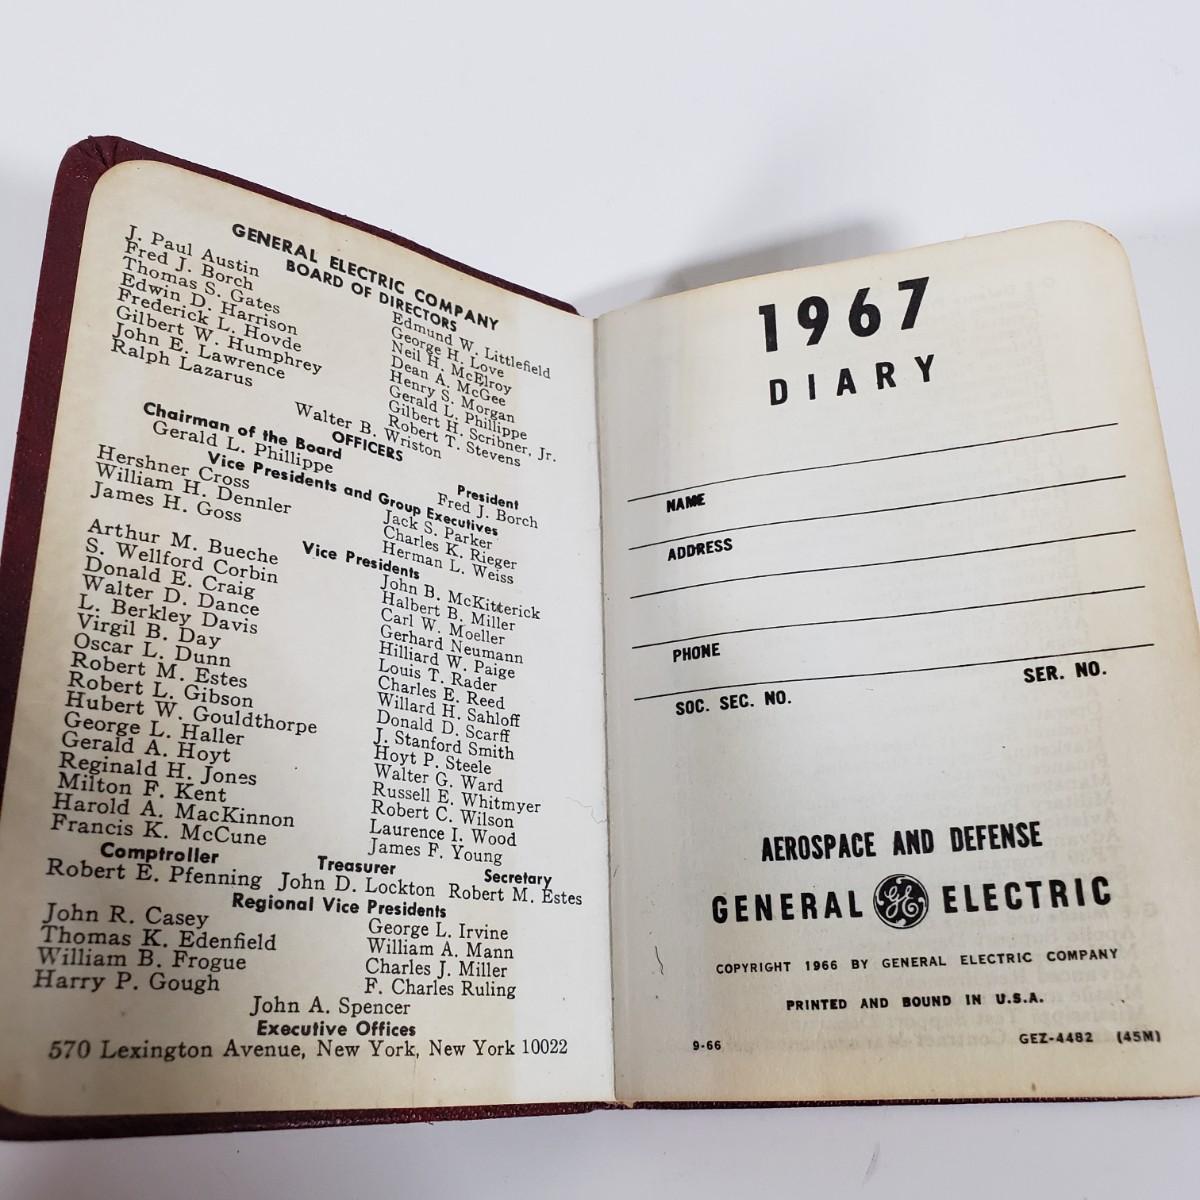 GENERAL ELECTRIC COMPANY
BOARD OF DIRECTORS
J. Paul Austin
Fred J. Borch
Thomas S. Gates
Edwin D. Harrison
Frederick L. Hovde
Gilbert W. Humphrey
John E. Lawrence
Ralph Lazarus
Edmund W. Littlefield
George H. Love
Neil H. McElroy
Dean A. McGee
Henry S. Morgan
Gerald L. Phillippe
Gilbert H. Scribner, Jr.
Robert T. Stevens
Walter B. Wriston
OFFICERS
Chairman of the Board
Gerald L. Phillippe
President
Fred J. Borch
Vice Presidents and Group Executives
Hershner Cross
William H. Dennler
James H. Goss
Jack S. Parker
Charles K. Rieger
Herman L. Weiss
Vice Presidents
Arthur M. Bueche
S. Wellford Corbin
Donald E. Craig
Walter D. Dance
L. Berkley Davis
Virgil B. Day
Oscar L. Dunn
Robert M. Estes
Robert L. Gibson
Hubert W. Gouldthorpe
George L. Haller
Gerald A. Hoyt
Reginald H. Jones
Milton F. Kent
Harold A. MacKinnon
Francis K. McCune
John B. McKitterick
Halbert B. Miller
Carl W. Moeller
Gerhard Neumann
Hilliard W. Paige
Louis T. Rader
Charles E. Reed
Willard H. Sahloff
Donald D. Scarff
J. Stanford Smith
Hoyt P. Steele
Walter G. Ward
Russell E. Whitmyer
Robert C. Wilson
Laurence I. Wood
James F. Young
Comptroller Treasurer Secretary
Robert E. Pfenning John D. Lockton Robert M. Estes
Regional Vice Presidents
John R. Casey
Thomas K. Edenfield
William B. Frogue
Harry P. Gough
George L. Irvine
William A. Mann
Charles J. Miller
F. Charles Ruling
John A. Spencer
Executive Offices
570 Lexington Avenue, New York, New York 10022
1967
DIARY
NAME
ADDRESS
PHONE
SOC. SEC. NO. SER. NO.
AEROSPACE AND DEFENSE
GENERAL GE ELECTRIC
COPYRIGHT 1966 BY GENERAL ELECTRIC COMPANY
PRINTED AND BOUND IN U.S.A.
9-66 GEZ-4482 (45M)